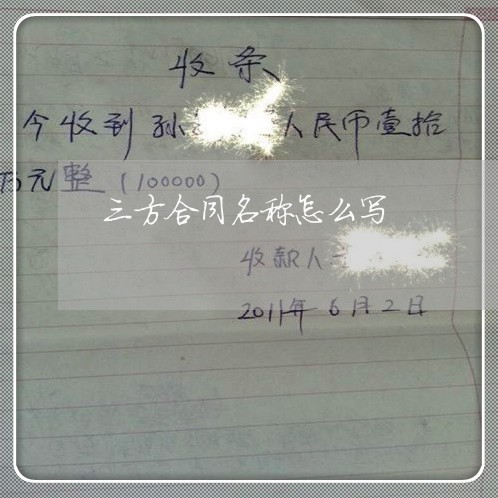 收条
今收到孙 人民币壹拾
万元整(100000)
三方合同名称怎么写
收款人
2011年6月2日